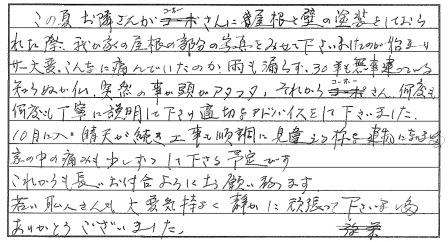 この夏お隣さんがコーボーさんに屋根と壁の塗装をしておら
れた際、我が家の屋根の部分の写真をみせて下さいましたのが始まり
サー大変、こんなに痛んでいたのか、雨も漏らず、30年も無事建っている
知らぬが仏、突然の事で頭がアタフタ、それからコーボーさん何度も
何度も丁寧に説明して下さり適切なアドバイスをして下さいました。
10月に入り晴天が続き工事も順調に
家の中の痛みも少しずつして下さる予定です
これからも長いお付合よろしくお願い致します
若い職人さんも大変気持よく静かに頑張って下さいます
ありがとうございました。